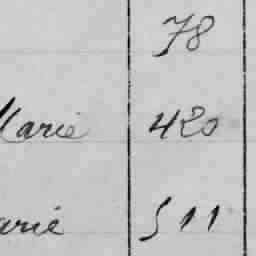 78
Marie 420
arie 511